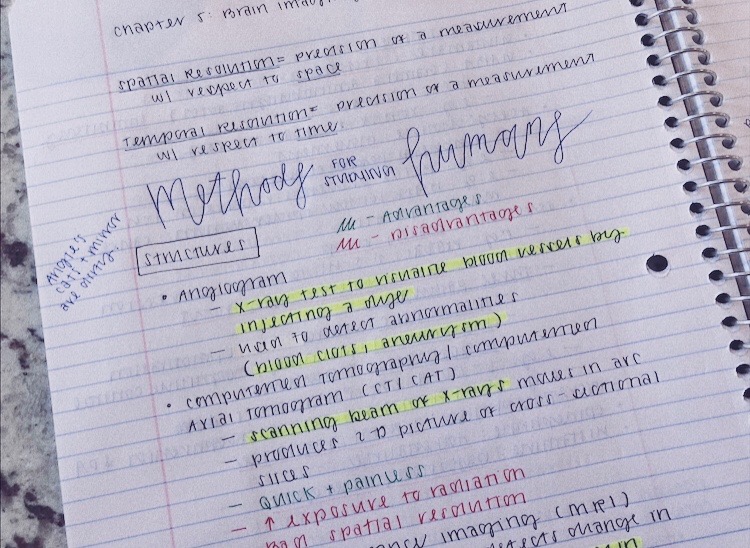 chapter 5: Brain imag
spatial resolution= precision of a measurement
w/ respect to space
Temporal resolution= precision of a measurement
w/ respect to time
Methods FOR STUDYING humans
- Advantages
- Disadvantages
structures
cats + mirror
• Angiogram
- x-ray test to visualize blood vessels by
injecting a dye
- used to detect abnormalities
(blood clots, aneurysm)
• computerized tomography/computerized
Axial Tomogram (CT/CAT)
- scanning beam of x-rays moves in arc
- produces 2-D picture of cross-sectional
slices
- quick + painless
- ↑ exposure to radiation
Bad spatial resolution
imaging (MRI)
detects change in